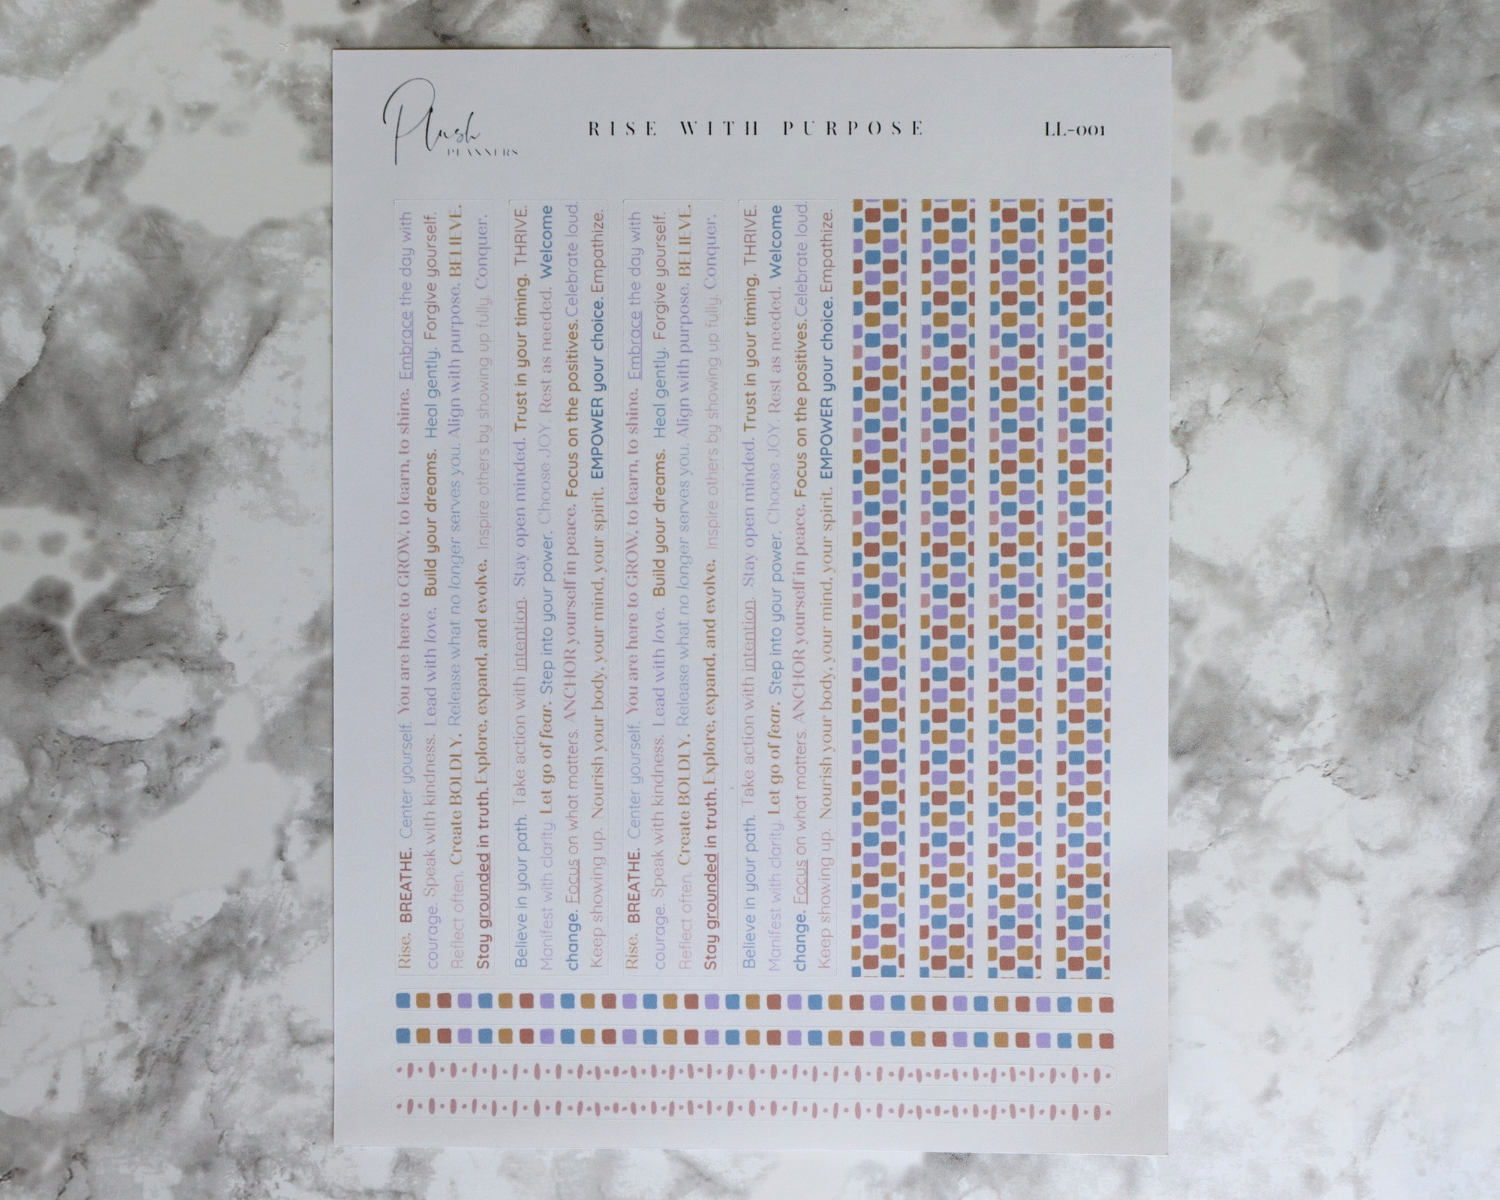 Plush
PLANNERS
RISE WITH PURPOSE
LL-001
Rise. BREATHE. Center yourself. You are here to GROW, to learn, to shine. Embrace the day with
courage. Speak with kindness. Lead with love. Build your dreams. Heal gently. Forgive yourself.
Reflect often. Create BOLDLY. Release what no longer serves you. Align with purpose. BELIEVE.
Stay grounded in truth. Explore, expand, and evolve. Inspire others by showing up fully. Conquer.
Believe in your path. Take action with intention. Stay open minded. Trust in your timing. THRIVE.
Manifest with clarity. Let go of fear. Step into your power. Choose JOY. Rest as needed. Welcome
change. Focus on what matters. ANCHOR yourself in peace. Focus on the positives. Celebrate loud.
Keep showing up. Nourish your body, your mind, your spirit. EMPOWER your choice. Empathize.
Rise. BREATHE. Center yourself. You are here to GROW, to learn, to shine. Embrace the day with
courage. Speak with kindness. Lead with love. Build your dreams. Heal gently. Forgive yourself.
Reflect often. Create BOLDLY. Release what no longer serves you. Align with purpose. BELIEVE.
Stay grounded in truth. Explore, expand, and evolve. Inspire others by showing up fully. Conquer.
Believe in your path. Take action with intention. Stay open minded. Trust in your timing. THRIVE.
Manifest with clarity. Let go of fear. Step into your power. Choose JOY. Rest as needed. Welcome
change. Focus on what matters. ANCHOR yourself in peace. Focus on the positives. Celebrate loud.
Keep showing up. Nourish your body, your mind, your spirit. EMPOWER your choice. Empathize.